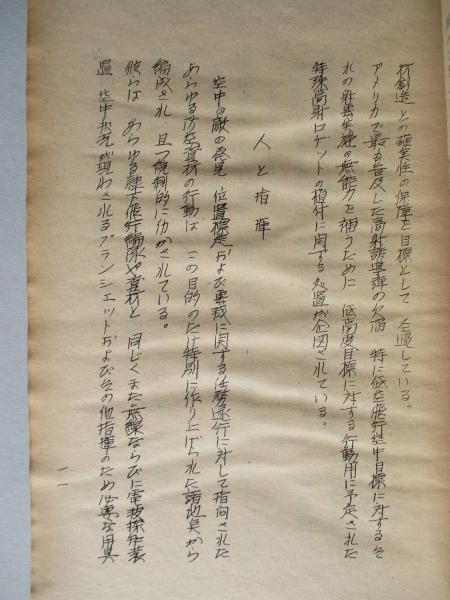 創造との確実性の保障を目標として 全遇している。
アメリカで最も普及した高射誘導弾の欠陥 特に低空飛行空中目標に対するそ
れの射撃実施の無能力を補うために 低高度目標に対する行動用に予定された
特殊高射ロケットの植付に関する処置が企図されている。
人と指揮
空中の敵の発見 位置標定および要撃に関する任務遂行に対して指向された
あらゆる方空資材の行動は この目的のため特別に作り上げられた諸地点から
編成され 且つ統制的に行かされている。
彼らは あらゆる隷下飛行編隊や資材と 同じくまた無線ならびに電波探知装
置 空中状況が現わされるプランシェットおよびその他指揮のため必要な用具
一一